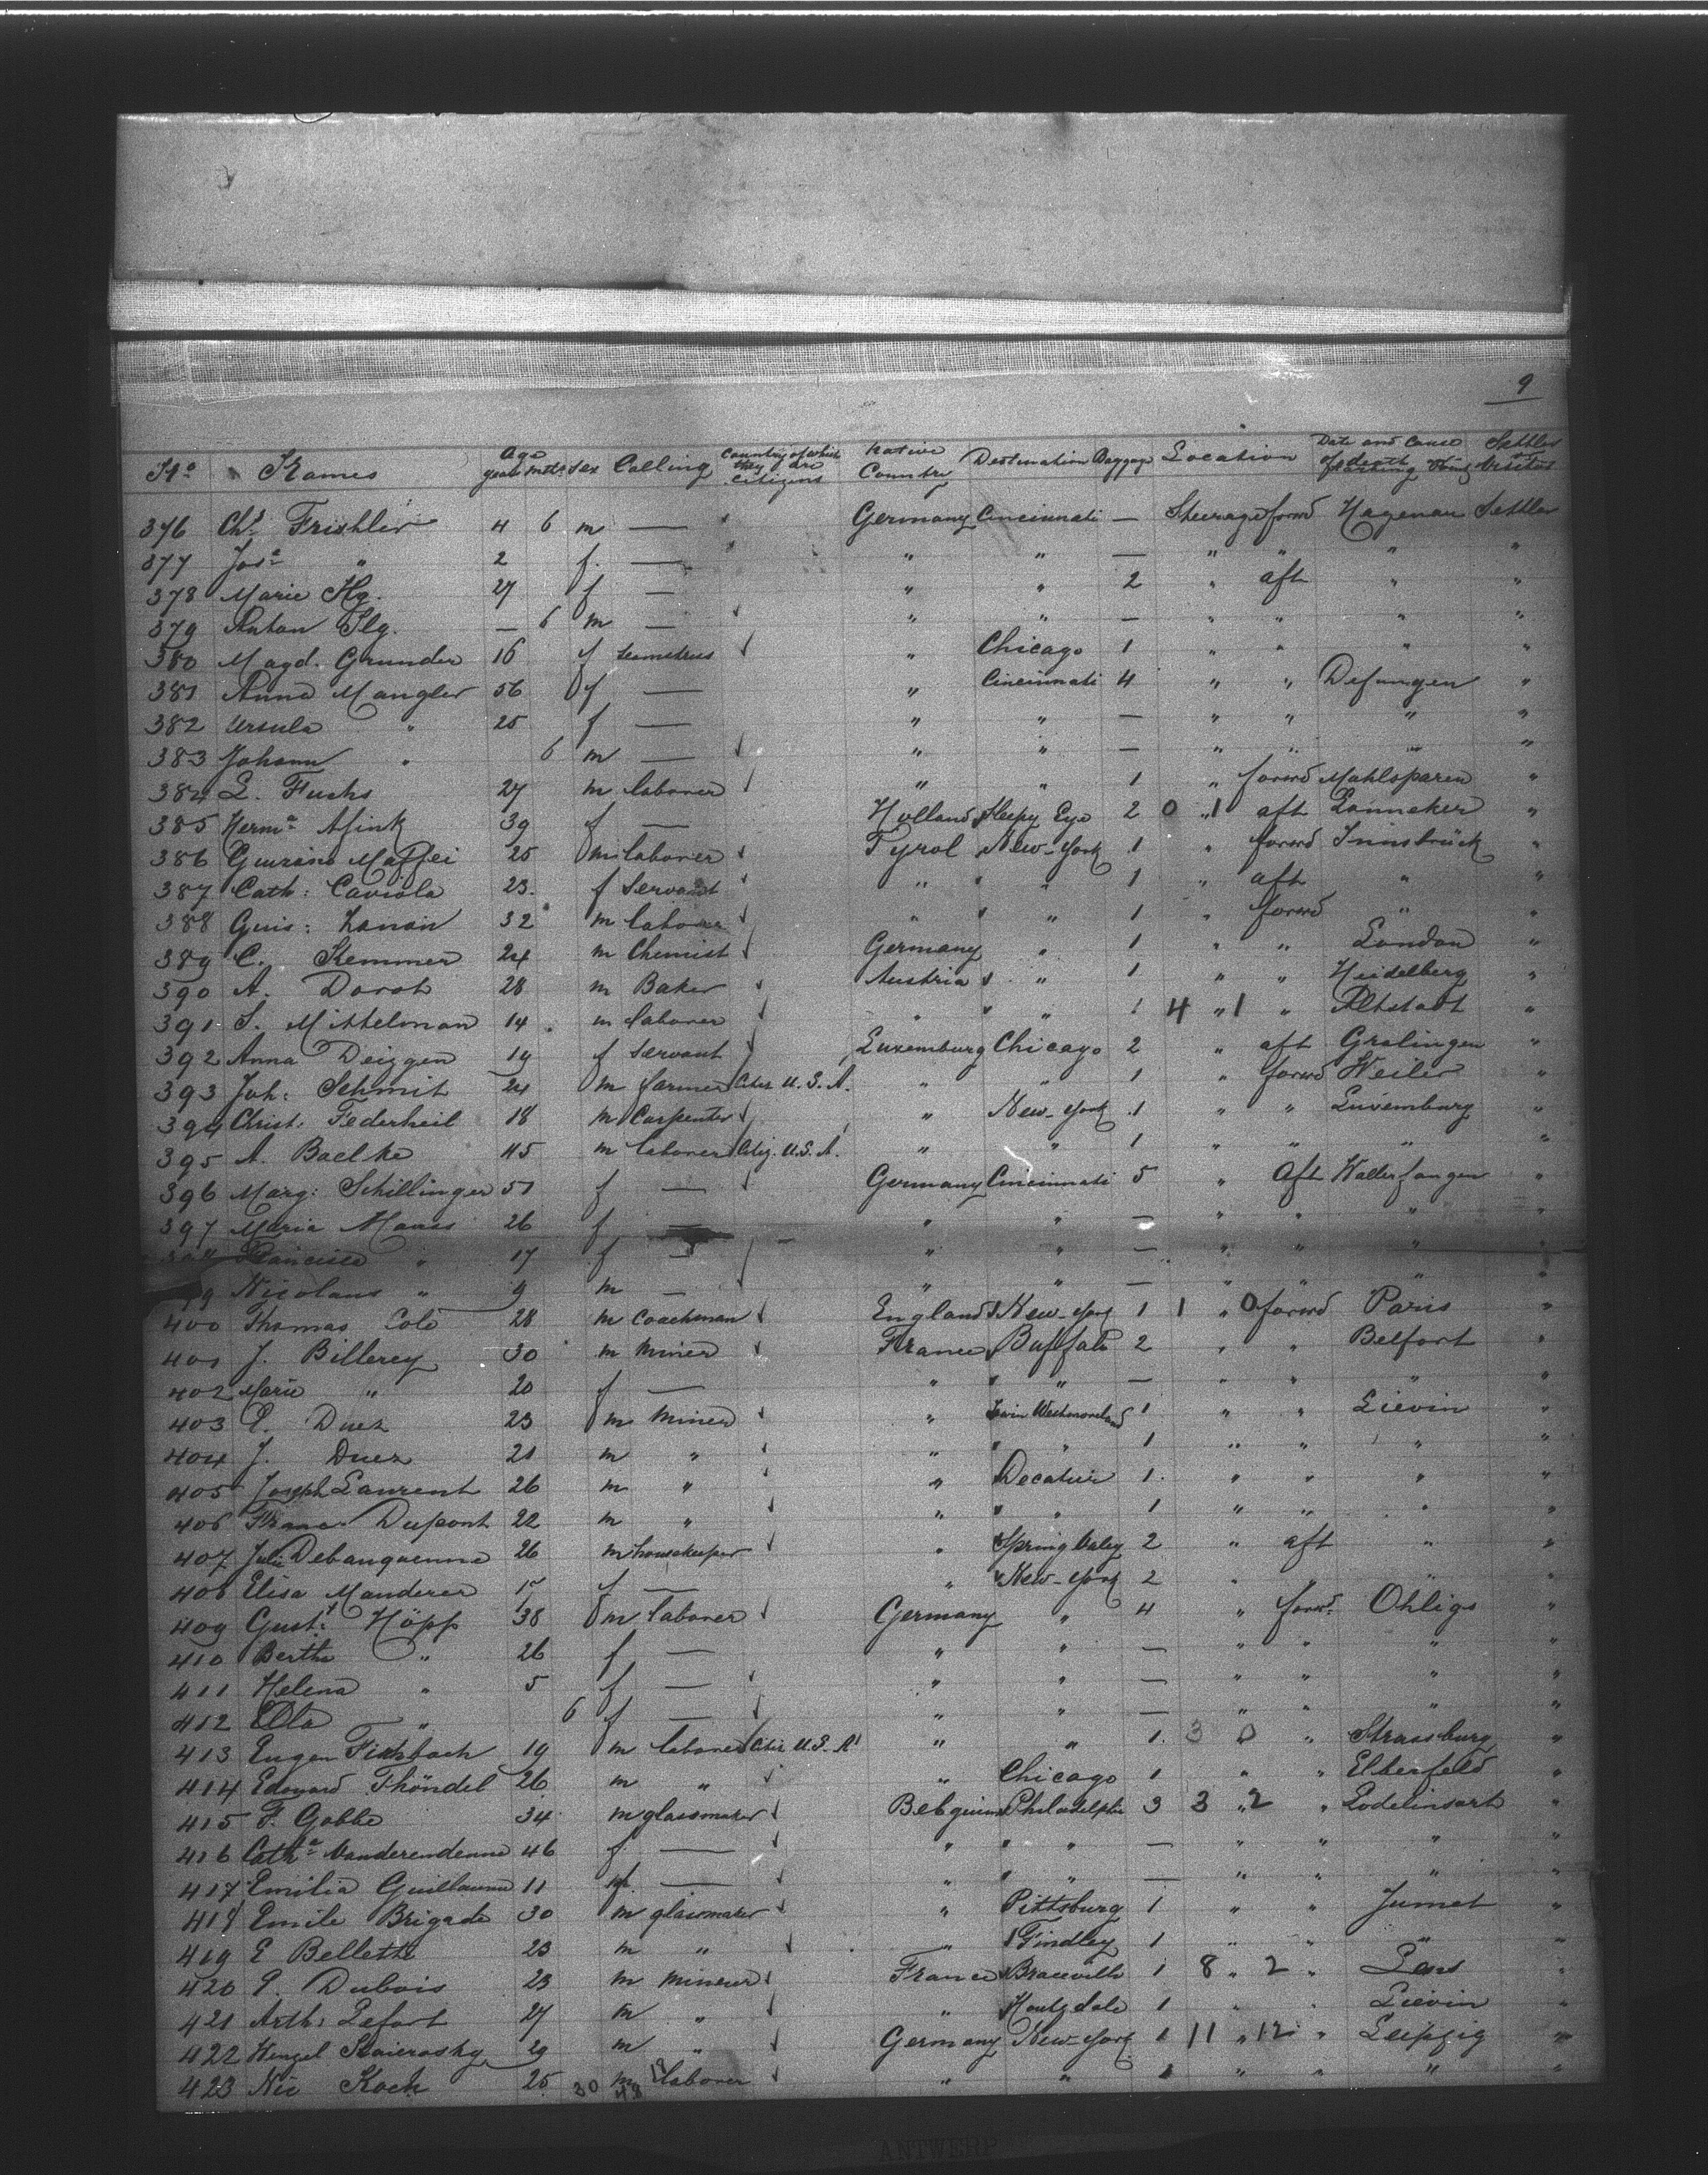 9
No Names Age years mths Sex Calling Country of which they are citizens Native Country Destination Baggage Location Date and Cause of death Settler or Visitor
376 Chs Frishler 4 6 m — Germany Cincinnati — Steerage forwd Hagenau Settler
377 Josa " 2 f. — " " — " " " "
378 Marie Ilg. 27 f — " " 2 " aft " "
379 Anton Ilg. — 6 m — " " — " " " "
380 Magd. Grunder 16 f seemstress " Chicago 1 " " " "
381 Anna Mangler 56 f — " Cincinnati 4 " " Defungen "
382 Ursula " 25 f — " " — " " " "
383 Johann " 6 m — " " — " " " "
384 L. Fuchs 27 m laborer " " 1 " forwd "
385 Herma Afink 39 f — Holland Sleepy Eye 2 0 " 1 aft Lonneker "
386 Maffei 25 m laborer Tyrol New-York 1 " forwd Innsbrück "
387 Cath: Caviola 23. f Servant " " 1 " aft " "
388 Guis: Zanon 32 m laborer " " 1 " forwd " "
389 C. Kemmer 24 m Chemist Germany " 1 " " London "
390 A. Dorst 28 m Baker Austria " 1 " " Heidelberg "
391 S. Mittelman 14 m laborer " " 1 4 " 1 " Altstadt "
392 Anna Deizgen 19 f servant Luxemburg Chicago 2 " aft Gralingen "
393 Joh: Schmit 24 m farmer Citiz U.S.A. " " 1 " forwd Weiler "
394 Christ. Federheil 18 m Carpenter " New-York 1 " " Luxemburg "
395 A. Baelke 45 m laborer Citiz. U.S.A. " " 1 " " " "
396 Marg: Schillinger 51 f — Germany Cincinnati 5 " aft Wallerfangen "
397 Maria Mauss 26 f — " " — " " " "
398 Francisca " 17 f — " " — " " " "
99 Nicolaus " 9 m — " " — " " " "
400 Thomas Cole 28 m Coachman England New-York 1 1 " 0 forwd Paris "
401 J. Billerey 30 m miner France Buffalo 2 " " Belfort "
402 Marie " 20 f — " " — " " " "
403 P. Duez 23 m miner " Irwin Westmoreland 1 " " Lievin "
404 J. Duez 21 m " " " 1 " " " "
405 Joseph Laurent 26 m " " Decatur 1. " " " "
406 Franc. Dupont 22 m " " " 1 " " " "
407 Juli Debanquenne 26 m housekeeper " Spring Valey 2 " aft " "
408 Elisa Manderer 15 f — " New-York 2 " " " "
409 Gust: Höpp 38 m laborer Germany " 4 " forwd. Ohligs "
410 Bertha " 26 f — " " — " " " "
411 Helena " 5 f — " " — " " " "
412 Ella " 6 f — " " — " " " "
413 Eugen Fischbach 19 m laborer Citiz U.S.A " " 1. 3 0 " Strassburg "
414 Edouard Thöndel 26 m " " Chicago 1 " " Elberfeld "
415 F. Gobbe 34 m glassmaker Belgium Philadelphia 3 3 " 2 " Lodelinsart "
416 Catha Vanderendenne 46 f — " " — " " " "
417 Emilia Guillaume 11 f. — " " — " " " "
418 Emile Brigade 30 m glasmaker " Pittsburg 1 " " Jumet "
419 E Bellette 23 m " " Findley 1 " " " "
420 P. Dubois 23 m mineur France Braceville 1 8 " 2 " Lens "
421 Arth: Lefort 27 m " " Houtzdale 1 " " Lievin "
422 Wenzel 29 m " Germany New-York 1 11 " 12 " Leipzig "
423 Nic Koch 25 m laborer " " 1 " " " "
30 48
ANTWERP